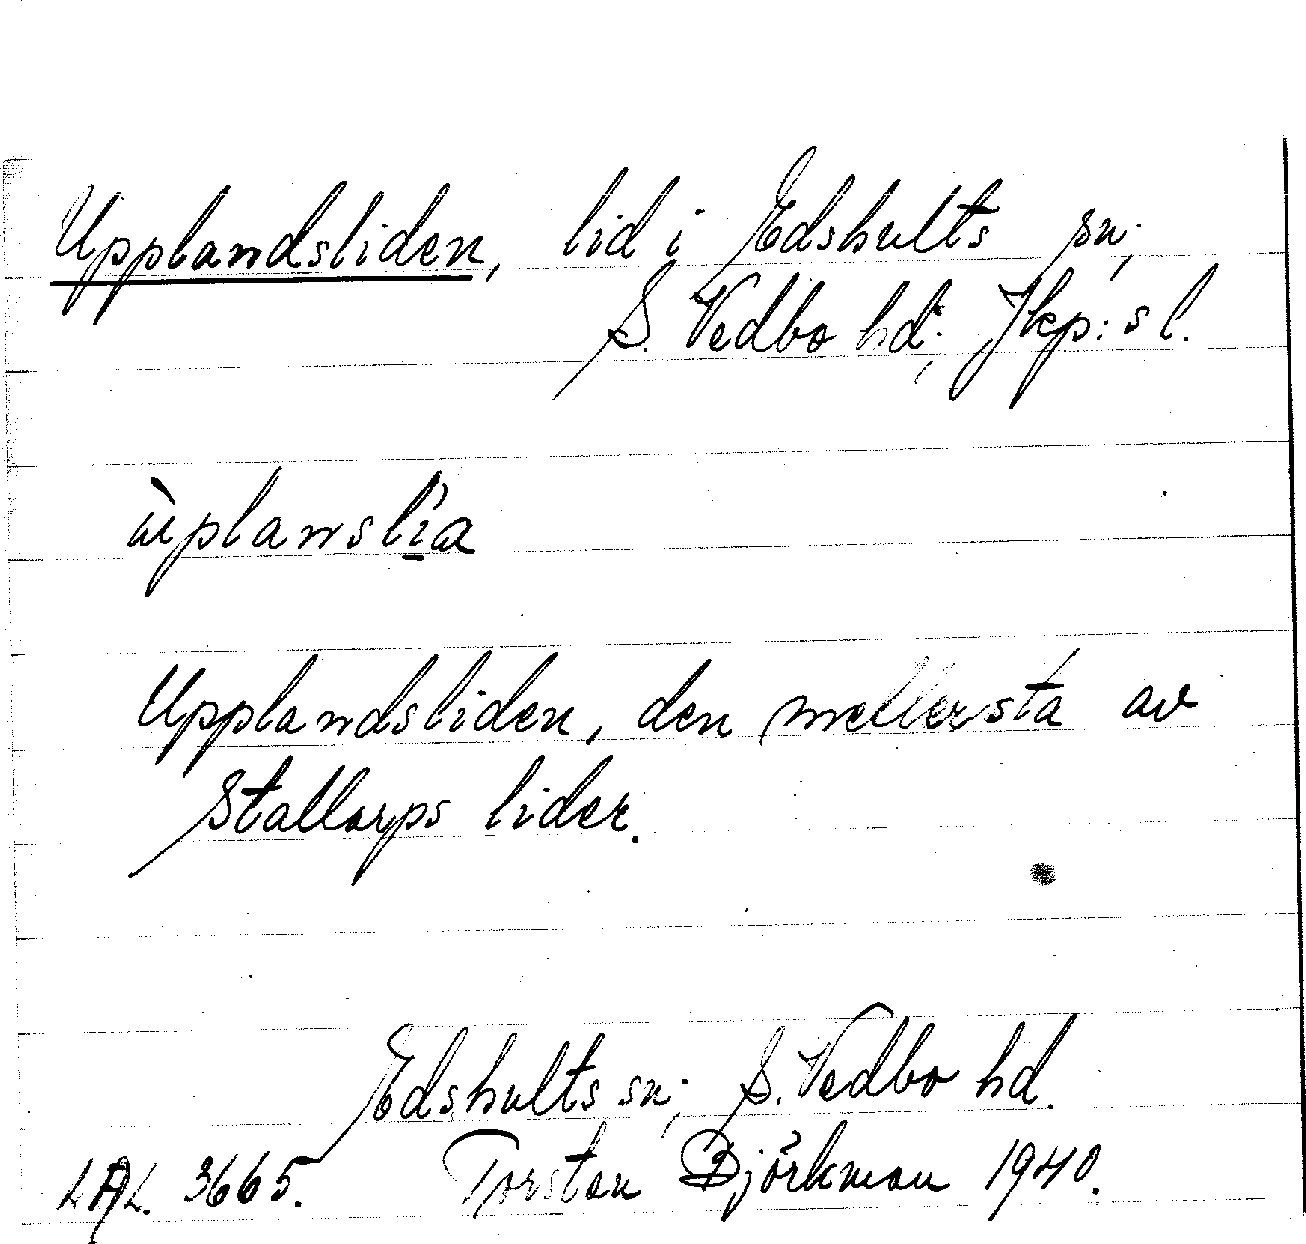 Upplandsliden, lid i Edshults sn;
S. Vedbo hd; Jkp:s l.
ùplanslía
Upplandsliden, den mellersta av
Stallarps lider.
Edshults sn; S. Vedbo hd.
LAL. 3665. Torsten Björkman 1940.